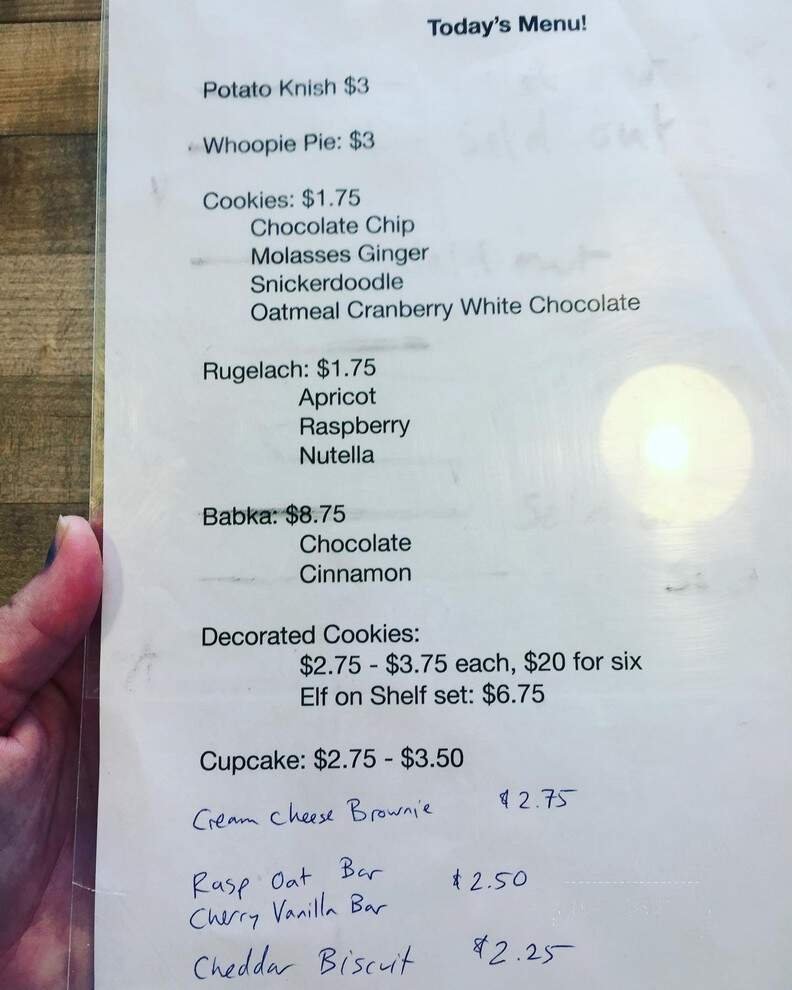 Today's Menu!
Potato Knish $3
Whoopie Pie: $3
Cookies: $1.75
Chocolate Chip
Molasses Ginger
Snickerdoodle
Oatmeal Cranberry White Chocolate
Rugelach: $1.75
Apricot
Raspberry
Nutella
Babka: $8.75
Chocolate
Cinnamon
Decorated Cookies:
$2.75 - $3.75 each, $20 for six
Elf on Shelf set: $6.75
Cupcake: $2.75 - $3.50
Cream Cheese Brownie $2.75
Rasp Oat Bar $2.50
Cherry Vanilla Bar
Cheddar Biscuit $2.25